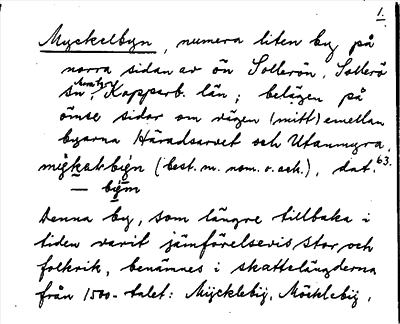 1.
Myckelbyn, numera liten by på
norra sidan av ön Sollerön, Sollerö
sn, Kopparb. län; belägen på
ömse sidor om vägen (mitt) emellan
byarna Häradsarvet och Utanmyra,
(best. m. nom. o. ack.), dat. 63.
Denna by, som längre tillbaka i
tiden varit jämförelsevis stor och
folkrik, benämnes i skattelängderna
från 1500-talet: Mycklebij, Möcklebij,